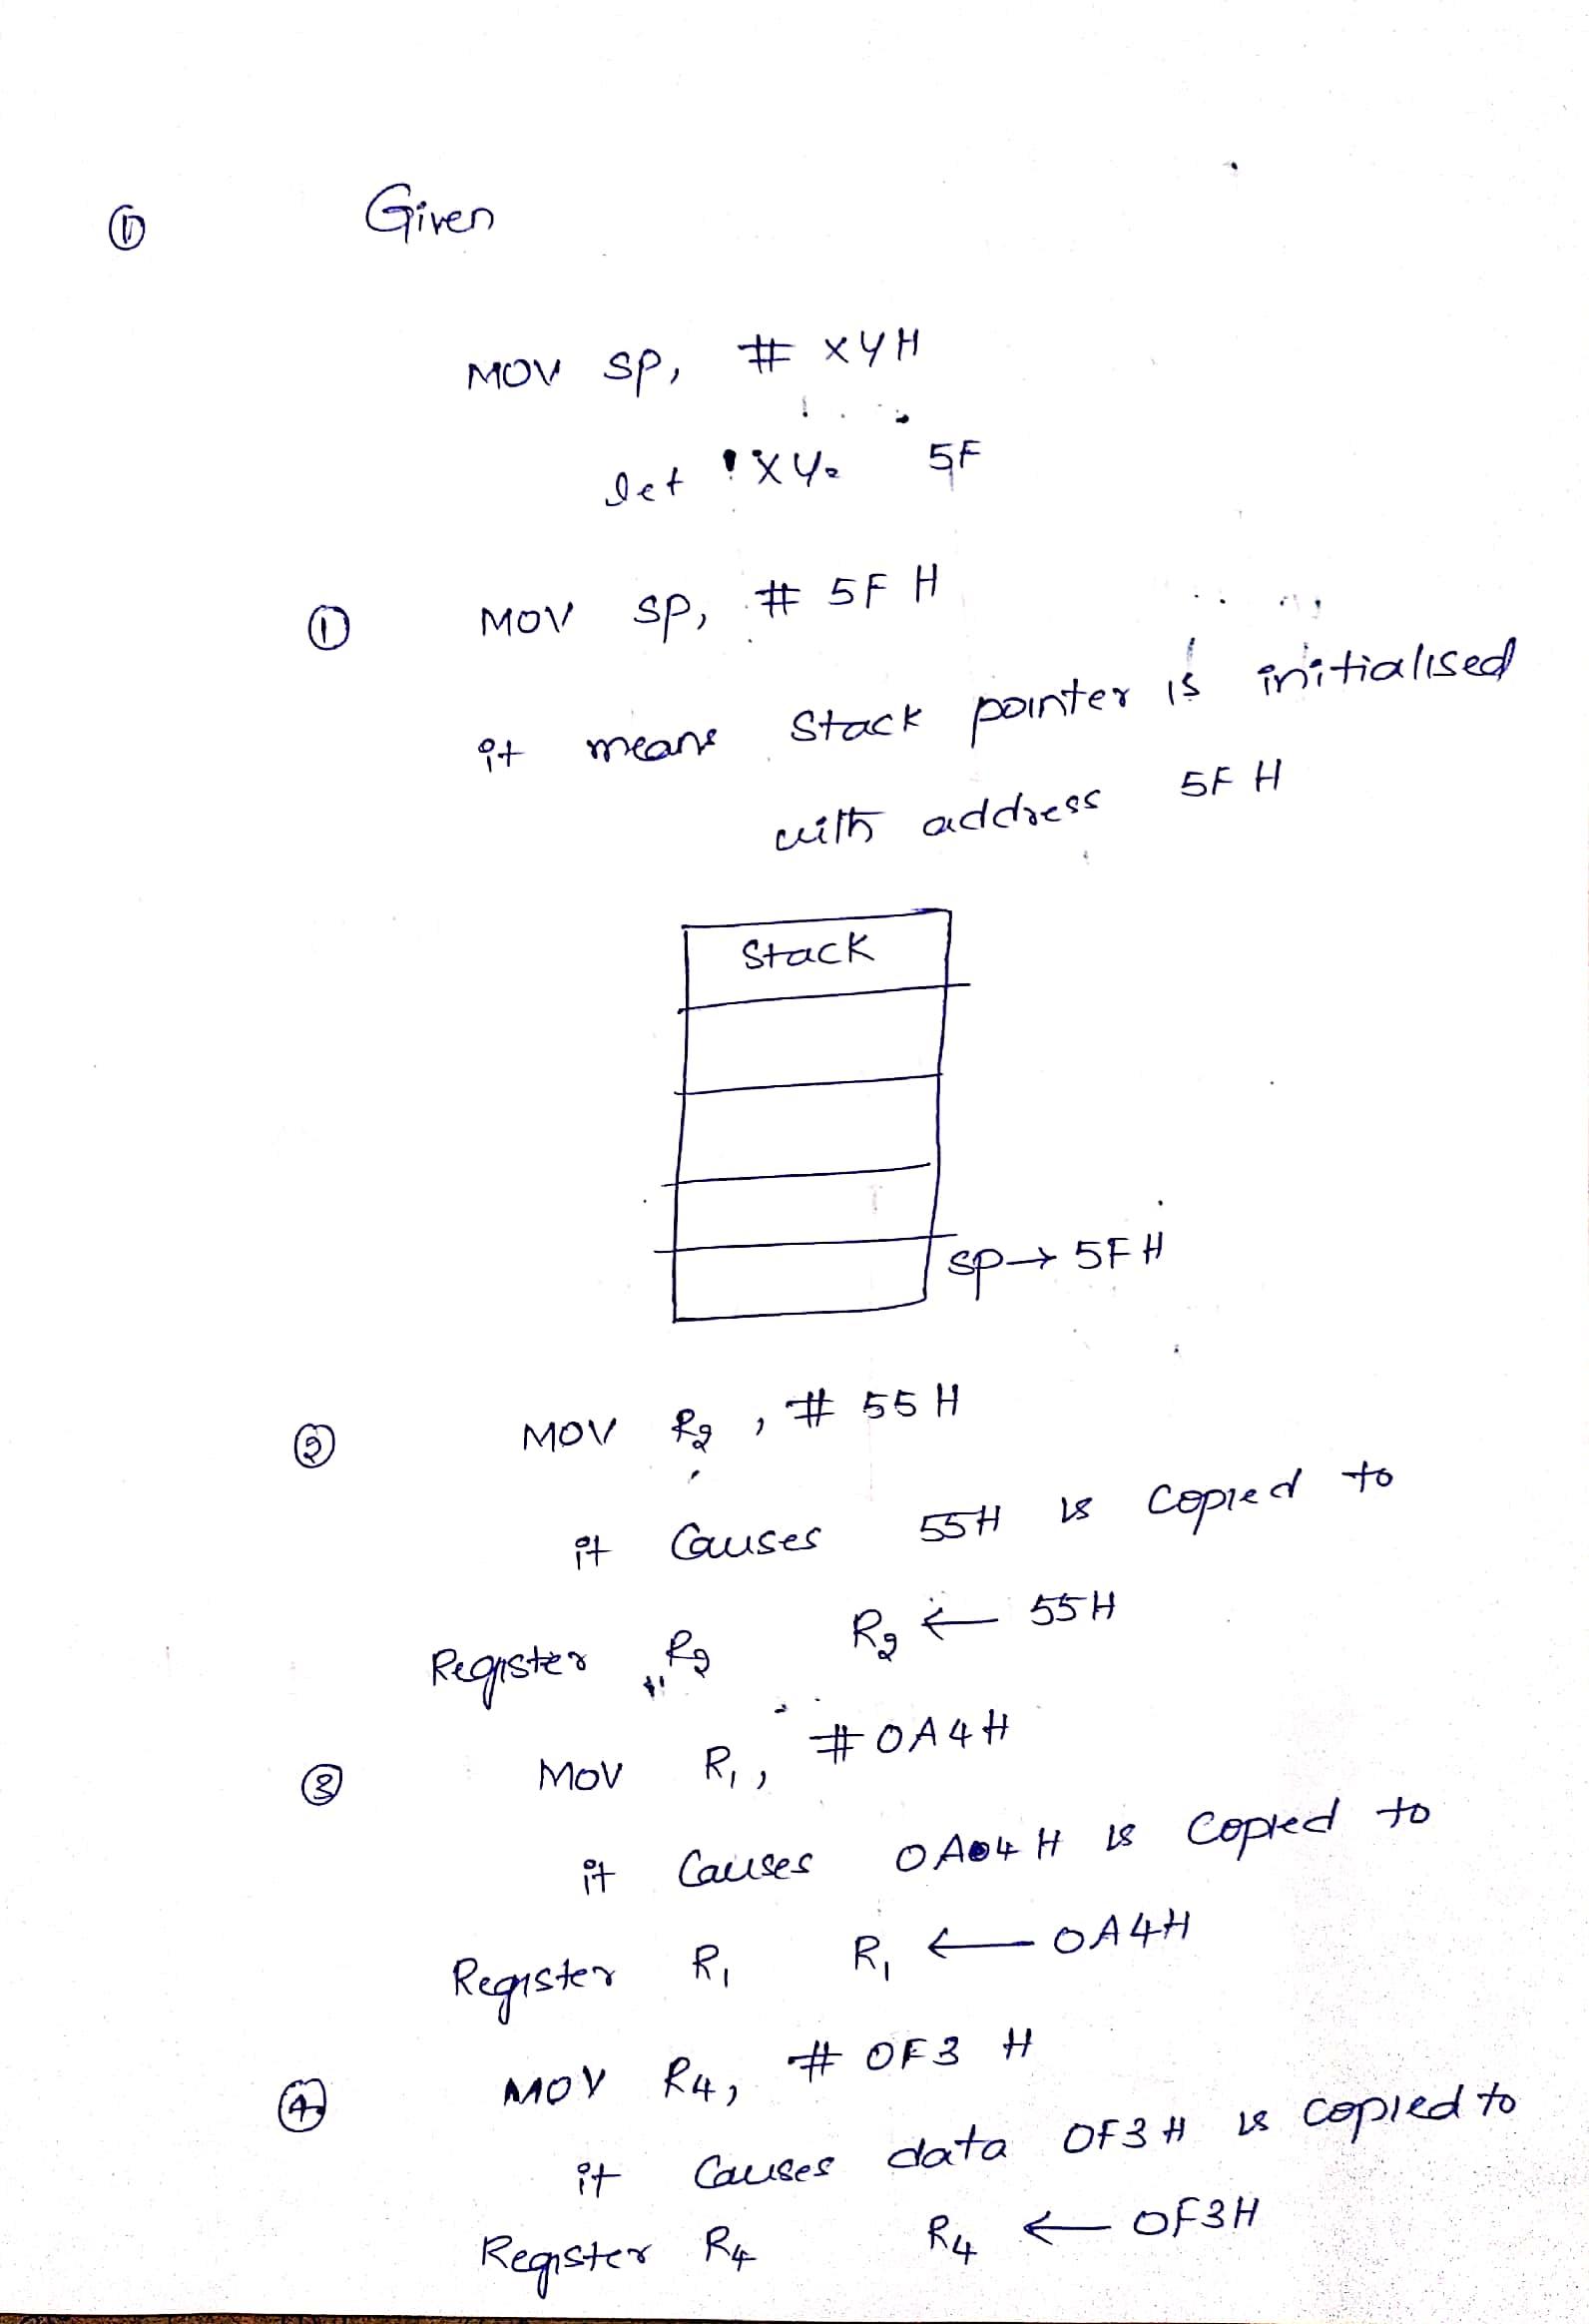 ① Given
MOV SP, # XYH
let XY = 5F
① MOV SP, # 5F H
it means Stack pointer is initialised
with address 5F H
Stack
SP → 5FH
② MOV R2, # 55 H
it Causes 55H is Copied to
Register R2 R2 ← 55H
③ MOV R1, # 0A4H
it Causes 0A04H is Copied to
Register R1 R1 ← 0A4H
④ MOV R4, # 0F3 H
it Causes data 0F3H is copied to
Register R4 R4 ← 0F3H